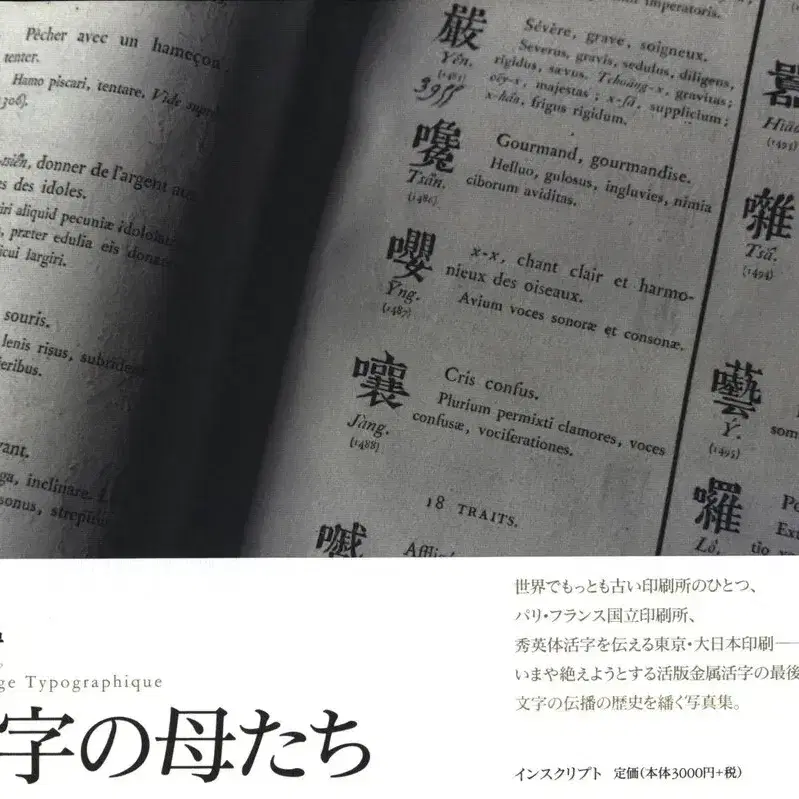 Pècher avec un hameçon
tenter.
Hamo piscari, tentare. Vide supra
306).
donner de l'argent aux
es des idoles.
iri aliquid pecuniæ idololatr
, præter edulia eis donare
icui largiri.
souris.
lenis risus, subridens
eribus.
vant.
ga, inclinare.
sonus, strepitus
imperatoris.
嚴
Yên.
(1485)
3955
Sévère, grave, soigneux.
Severus, gravis, sedulus, diligens,
rigidus, sævus. Tchoâng-x, gravitas;
oûy-x, majestas; x-fă, supplicium;
x-hân, frigus rigidum.
嚵
Tsân.
(1486)
Gourmand, gourmandise.
Helluo, gulosus, ingluvies, nimia
ciborum aviditas.
嚶
Yng.
(1487)
x-x, chant clair et harmo-
nieux des oiseaux.
Avium voces sonoræ et consonæ.
嚷
Jàng.
(1488)
Cris confus.
Plurium permixti clamores, voces
confusæ, vociferationes.
18 TRAITS.
Afflig
囂
Hiāo
(1493)
囃
Tsă.
(1494)
囈
Y.
(1495)
som
囉
Lô.
Po
Ext
tio
世界でもっとも古い印刷所のひとつ、
パリ・フランス国立印刷所、
秀英体活字を伝える東京・大日本印刷―
いまや絶えようとする活版金属活字の最後
文字の伝播の歴史を繙く写真集。
ge Typographique
字の母たち
インスクリプト 定価(本体3000円+税)